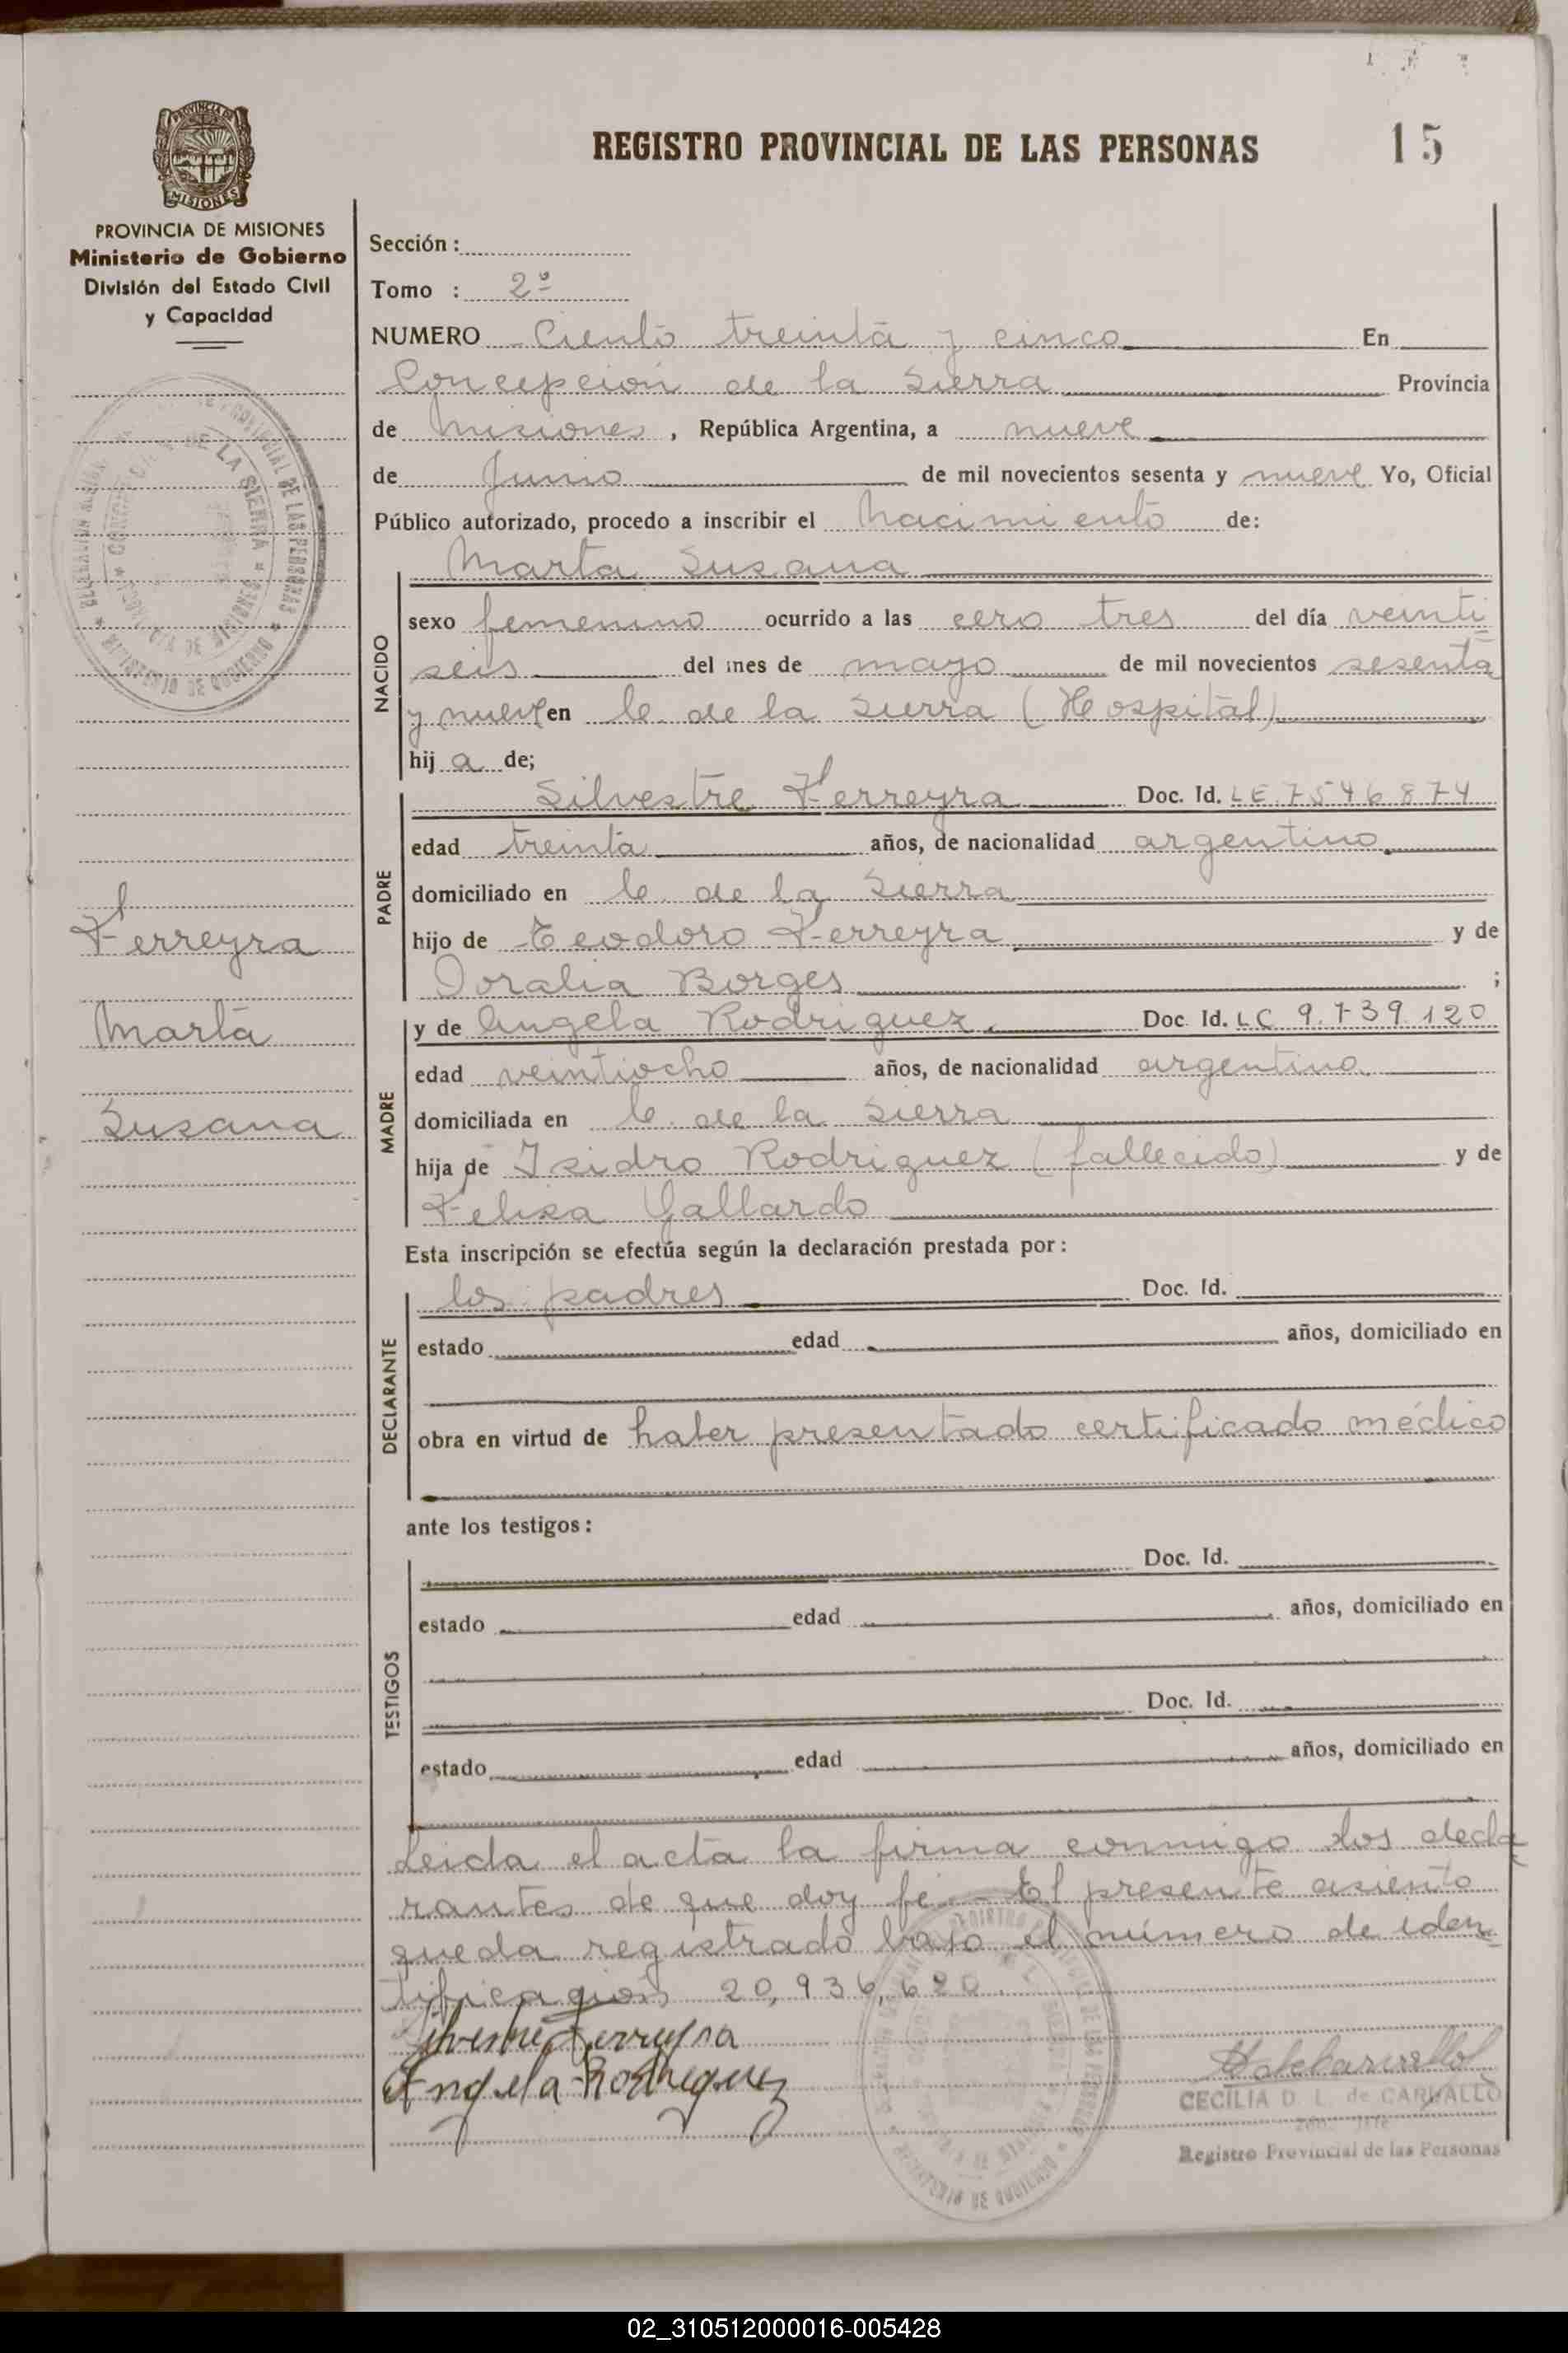 REGISTRO PROVINCIAL DE LAS PERSONAS
15
PROVINCIA DE
MISIONES
PROVINCIA DE MISIONES
Ministerio de Gobierno
División del Estado Civil
y Capacidad
Sección :
Tomo : 2º
NUMERO Ciento treinta y cinco En
Concepcion de la Sierra Provincia
de Misiones , República Argentina, a nueve
de Junio de mil novecientos sesenta y nueve Yo, Oficial
Público autorizado, procedo a inscribir el Nacimiento de:
NACIDO
Marta Susana
sexo femenino ocurrido a las cero tres del día veinti
seis del mes de mayo de mil novecientos sesenta
y nueve en C. de la Sierra (Hospital)
hij a de;
PADRE
Silvestre Ferreyra Doc. Id. LE 7546874
edad treinta años, de nacionalidad argentino
domiciliado en C. de la Sierra
hijo de Teodoro Ferreyra y de
Doralia Borges ;
MADRE
y de Angela Rodriguez. Doc. Id. LC 9.739.120
edad veintiocho años, de nacionalidad argentina
domiciliada en C. de la Sierra
hija de Isidro Rodriguez (fallecido) y de
Felisa Gallardo
Ferreyra
Marta
Susana
Esta inscripción se efectúa según la declaración prestada por :
DECLARANTE
los padres Doc. Id.
estado edad años, domiciliado en
obra en virtud de haber presentado certificado médico
ante los testigos :
TESTIGOS
Doc. Id.
estado edad años, domiciliado en
Doc. Id.
estado edad años, domiciliado en
Leida el acta la firma conmigo los decla
rantes de que doy fé. - El presente asiento
queda registrado bajo el número de iden
tificación 20,936,620.
Silvestre Ferreyra
Angela Rodriguez
CECILIA D. L. de CARVALLO
Registro Provincial de las Personas
02_310512000016-005428